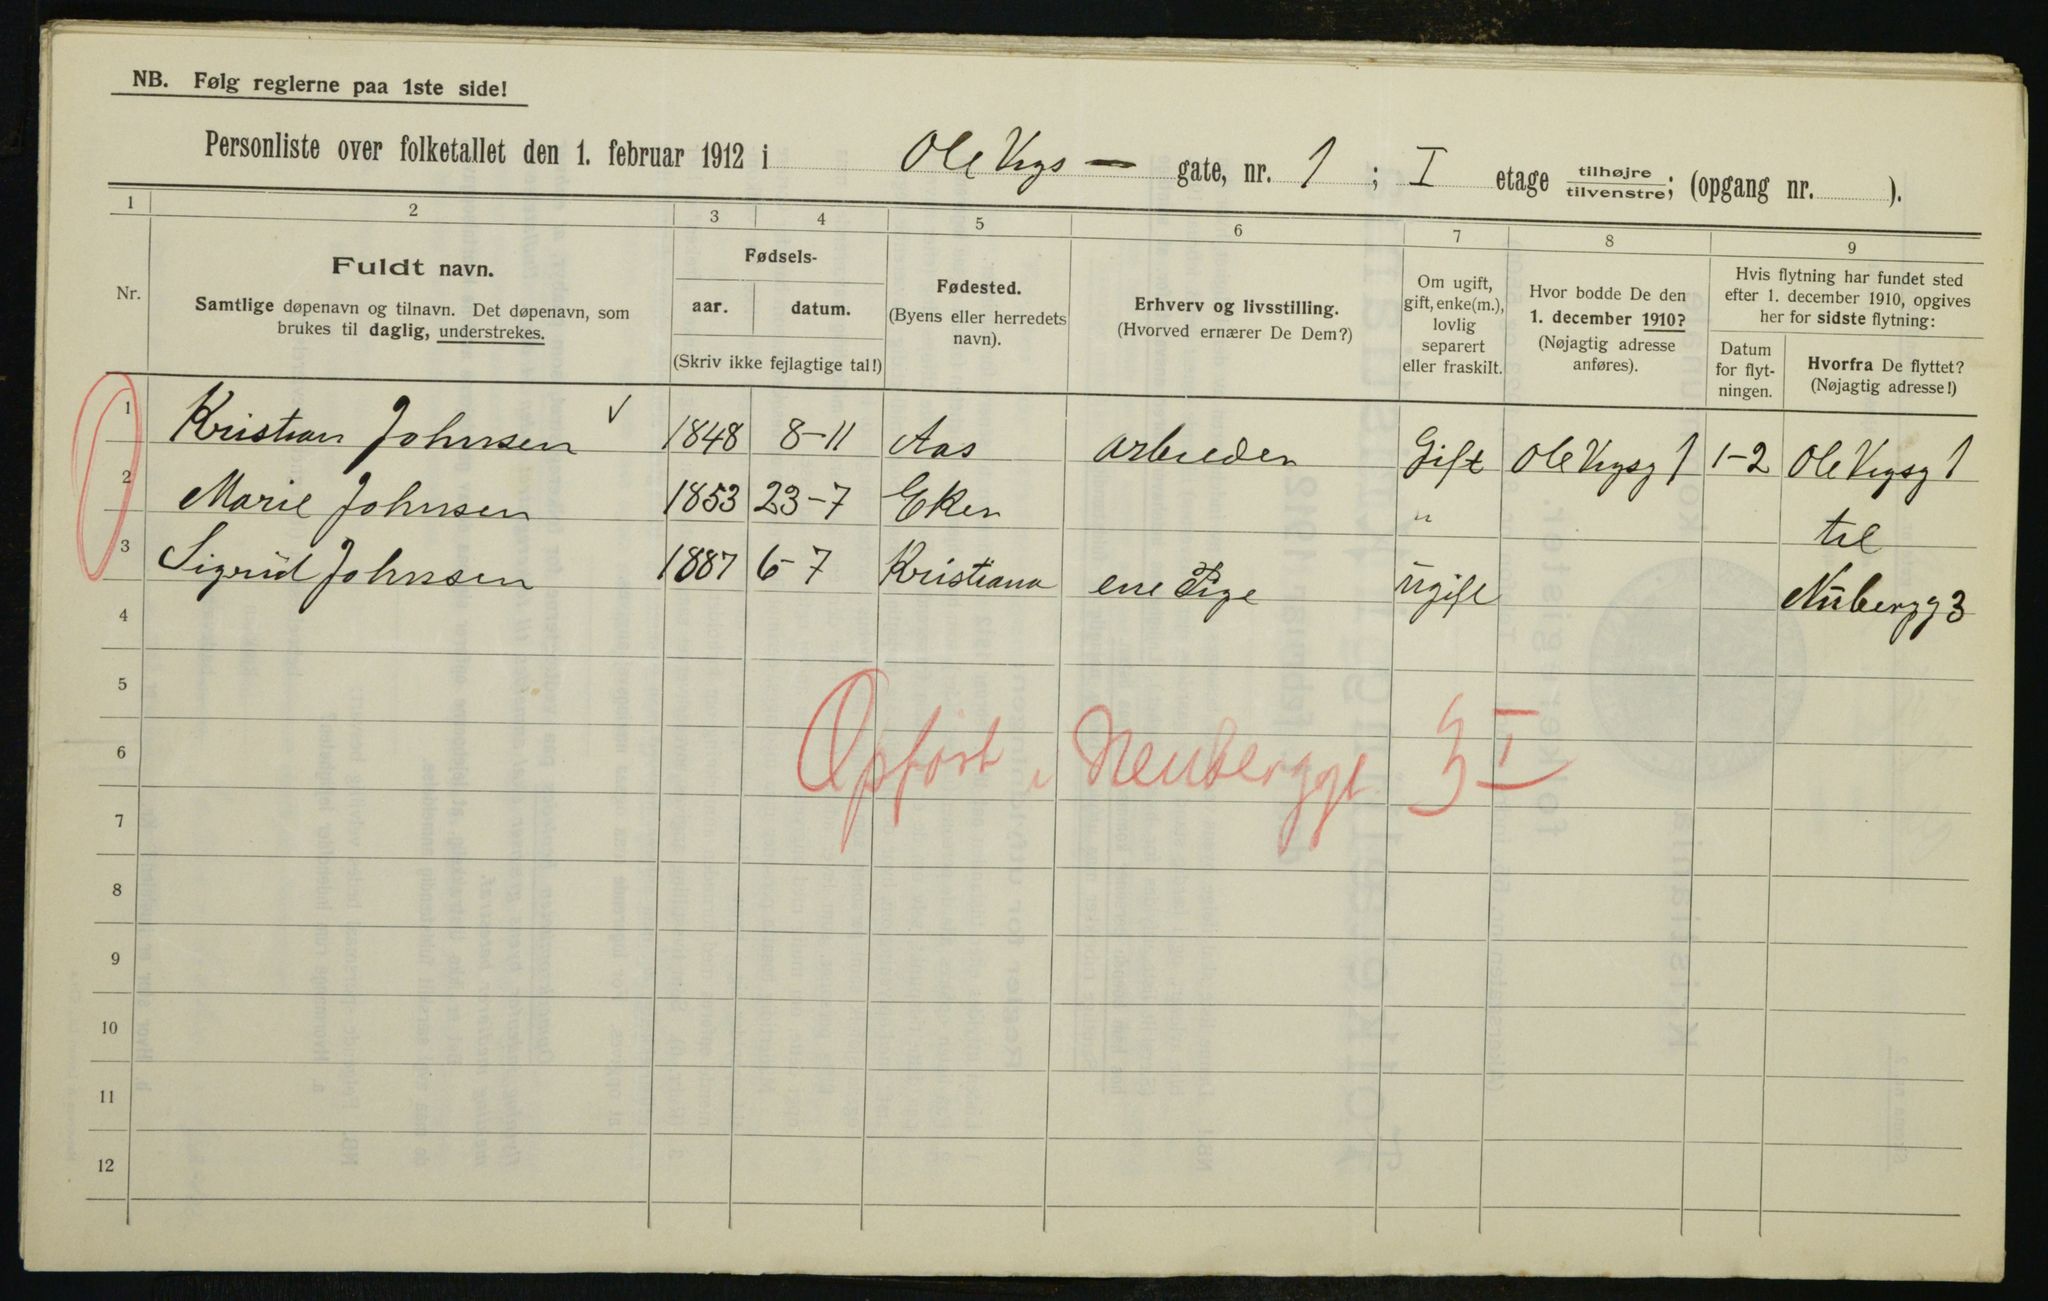 NB. Følg reglerne paa 1ste side!
Personliste over folketallet den 1. februar 1912 i Ole Vigs — gate, nr. 1 ; I etage tilhøjre/tilvenstre; (opgang nr. ).
1 2 3 4 5 6 7 8 9
Nr.
Fuldt navn.
Samtlige døpenavn og tilnavn. Det døpenavn, som
brukes til daglig, understrekes.
Fødsels-
aar. datum.
(Skriv ikke fejlagtige tal!)
Fødested.
(Byens eller herredets
navn).
Erhverv og livsstilling.
(Hvorved ernærer De Dem?)
Om ugift,
gift, enke(m.),
lovlig
separert
eller fraskilt.
Hvor bodde De den
1. december 1910?
(Nøjagtig adresse
anføres).
Hvis flytning har fundet sted
efter 1. december 1910, opgives
her for sidste flytning:
Datum
for flyt-
ningen.
Hvorfra De flyttet?
(Nøjagtig adresse!)
1 Kristian Johnsen √ 1848 8-11 Aas arbeider Gift Ole Vigsg 1 1-2 Ole Vigsg 1
2 Marie Johnsen 1853 23-7 Eker " til
3 Sigrid Johnsen 1887 6-7 Kristiana Pige ugift Nübergg 3
4
5
6 Opført i Neuberggt 3 I
7
8
9
10
11
12